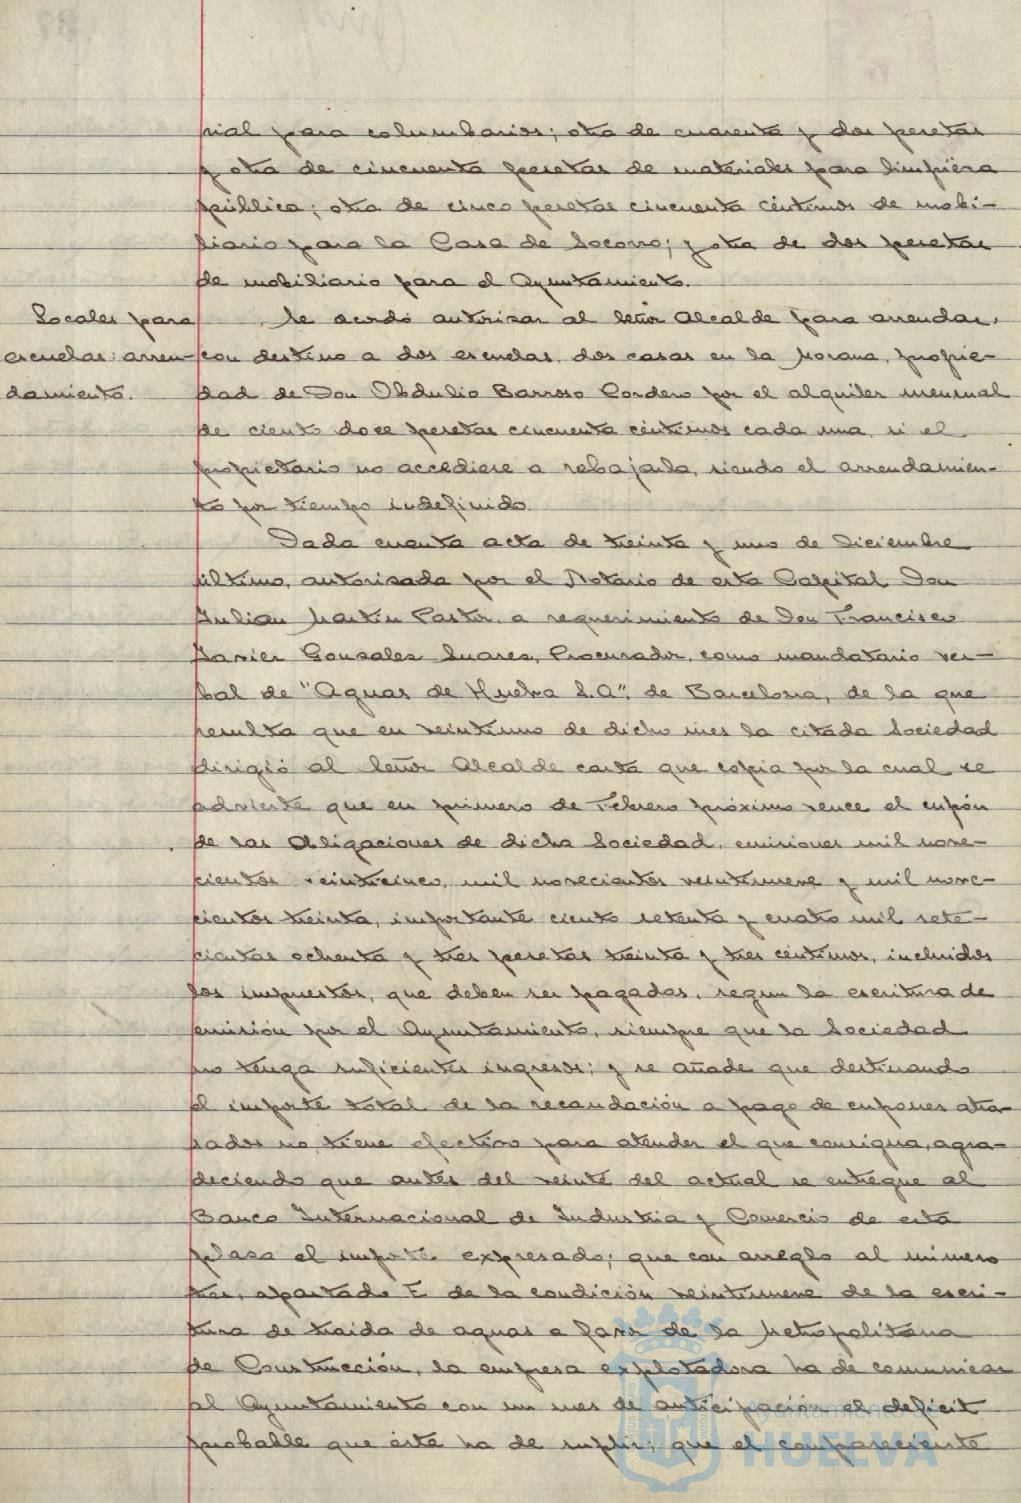 rial para columbarios; otra de cuarenta y dos pesetas
y otra de cincuenta pesetas de materiales para limpieza
pública; otra de cinco pesetas cincuenta céntimos de mobi-
liario para la Casa de Socorro; y otra de dos pesetas
de mobiliario para el Ayuntamiento.
Locales para escuelas: arren-
damiento.
Se acordó autorizar al Señor Alcalde para arrendar,
con destino a dos escuelas, dos casas en la Morana, propie-
dad de Don Obdulio Barroso Cordero por el alquiler mensual
de ciento doce pesetas cincuenta céntimos cada una, si el
propietario no accediese a rebajarla, siendo el arrendamien-
to por tiempo indefinido.
Dada cuenta acta de treinta y uno de Diciembre
último, autorizada por el Notario de esta Capital Don
Julian Martin Pastor, a requerimiento de Don Francisco
Javier Gonzalez Suarez, Procurador, como mandatario ver-
bal de "Aguas de Huelva S.A", de Barcelona, de la que
resulta que en veintiuno de dicho mes la citada Sociedad
dirigió al Señor Alcalde carta que copia por la cual se
advierte que en primero de Febrero próximo vence el cupón
de las Obligaciones de dicha Sociedad, emisiones mil nove-
cientos veinticinco, mil novecientos veintinueve y mil nove-
cientos treinta, importante ciento setenta y cuatro mil sete-
cientas ochenta y tres pesetas treinta y tres céntimos, incluidos
los impuestos, que deben ser pagadas, segun la escritura de
emisión por el Ayuntamiento, siempre que la Sociedad
no tenga suficientes ingresos; y se añade que destinando
el importe total de la recaudación a pago de cupones atra-
sados no tiene efectivo para atender el que consigna, agra-
deciendo que antes del veinte del actual se entregue al
Banco Internacional de Industria y Comercio de esta
plaza el importe expresado; que con arreglo al número
tres, apartado E de la condición veintinueve de la escri-
tura de traida de aguas a favor de la Metropolitana
de Construcción, la empresa explotadora ha de comunicar
al Ayuntamiento con un mes de anticipación el deficit
probable que éste ha de suplir; que el compareciente
Ayuntamiento de
HUELVA